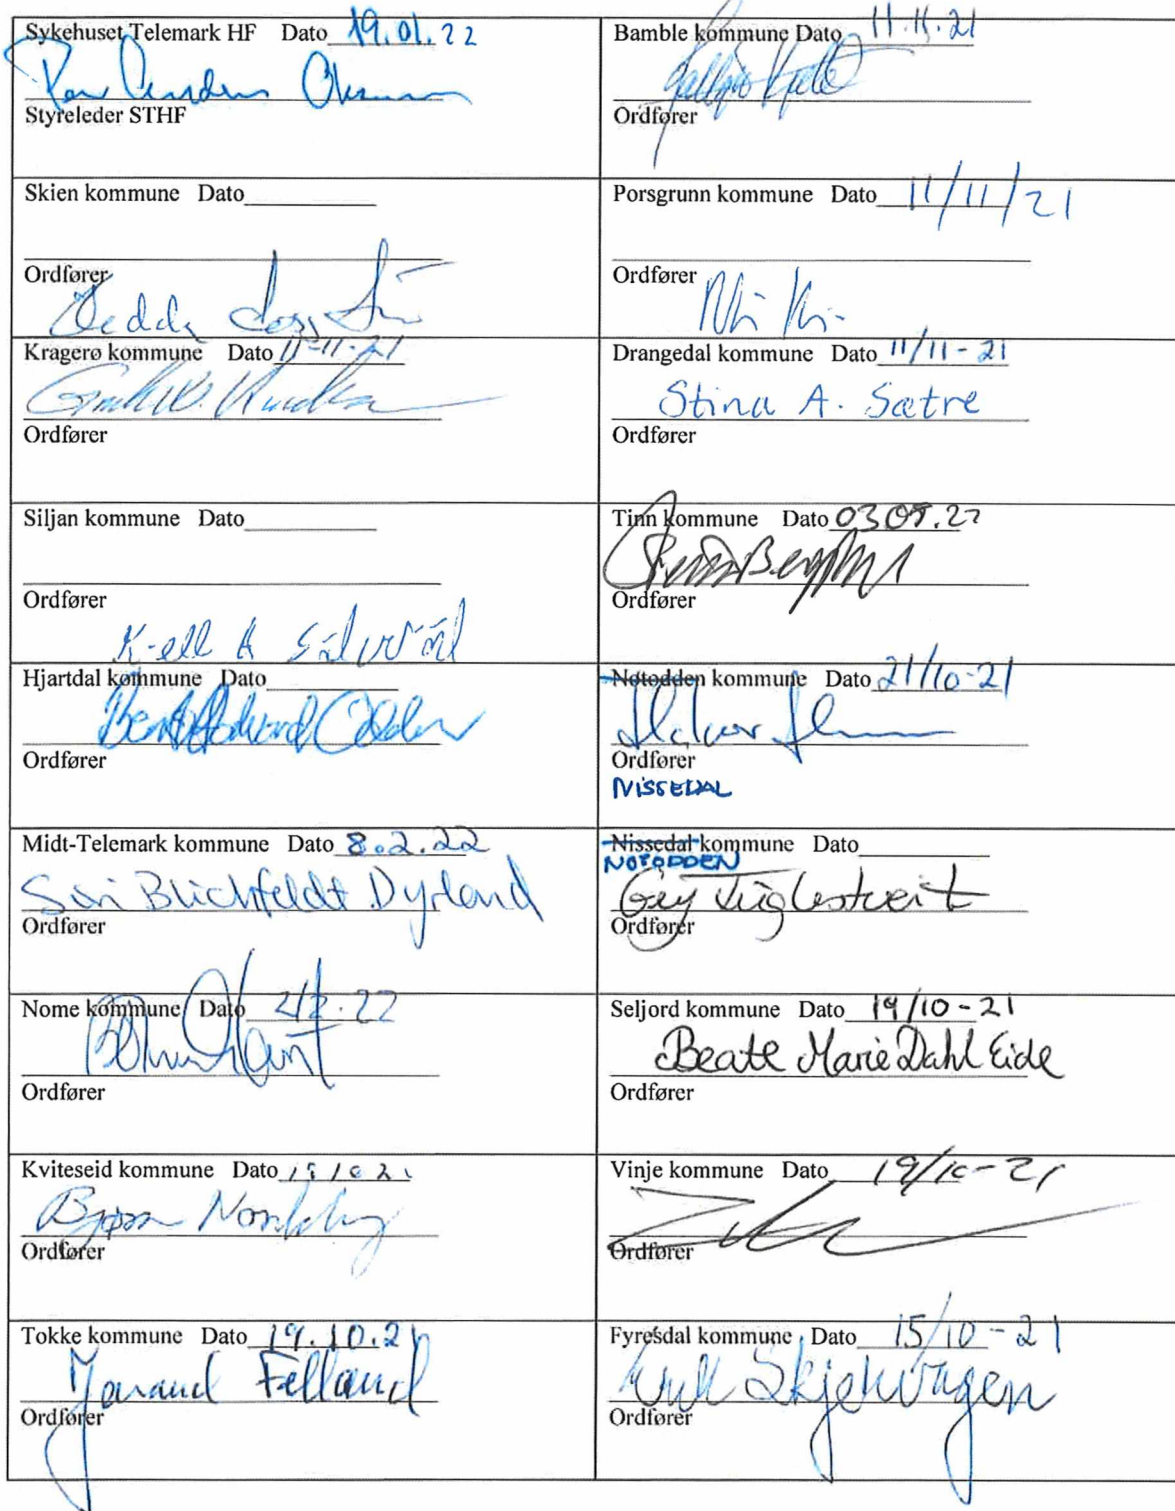 Sykehuset Telemark HF Dato 19.01.22
Styreleder STHF
Bamble kommune Dato 11.11.21
Ordfører
Skien kommune Dato
Ordfører
Hedda
Porsgrunn kommune Dato 11/11/21
Ordfører
Kragerø kommune Dato 11-11-21
Ordfører
Drangedal kommune Dato 11/11-21
Stina A. Sætre
Ordfører
Siljan kommune Dato
Ordfører
Kjell A
Tinn kommune Dato
Ordfører
Hjartdal kommune Dato
Ordfører
Notodden kommune Dato 21/10-21
Ordfører
NISSEDAL
Midt-Telemark kommune Dato 8.2.22
Siri Blichfeldt Dyrland
Ordfører
Nissedal kommune Dato
NOTODDEN
Gry Fuglestveit
Ordfører
Nome kommune Dato 2/2-22
Ordfører
Seljord kommune Dato 19/10-21
Beate Marie Dahl Eide
Ordfører
Kviteseid kommune Dato
Bjørn
Ordfører
Vinje kommune Dato 19/10-21
Ordfører
Tokke kommune Dato 19.10.21
Jarand Felland
Ordfører
Fyresdal kommune Dato 15/10-21
Erik Skjervagen
Ordfører